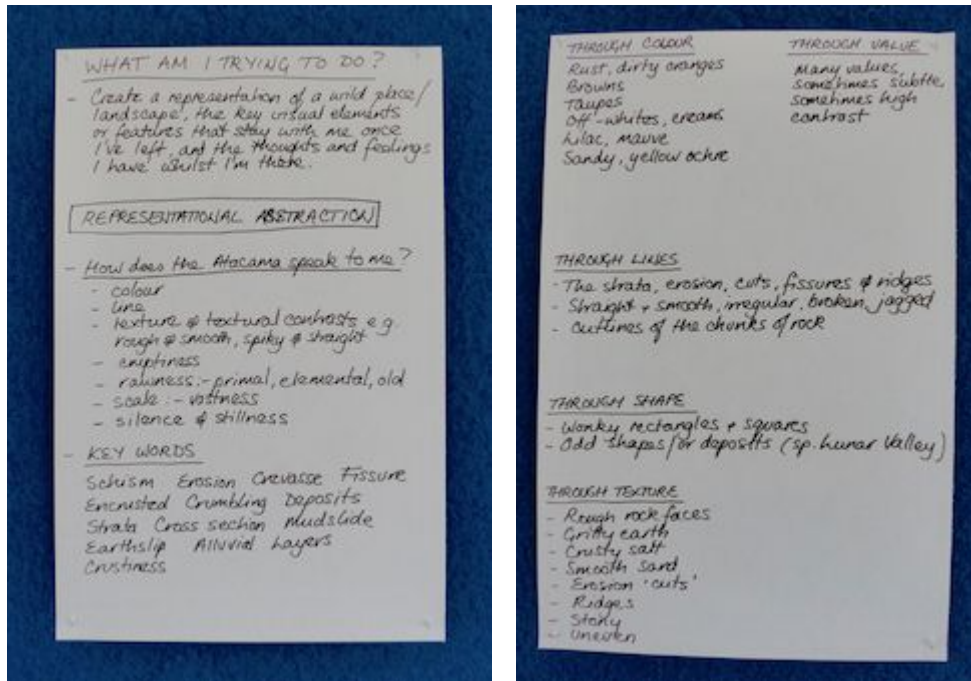 WHAT AM I TRYING TO DO?
- Create a representation of a wild place/
landscape, the key visual elements
or features that stay with me once
I've left, and the thoughts and feelings
I have whilst I'm there.
REPRESENTATIONAL ABSTRACTION
- How does the Atacama speak to me?
- colour
- line
- texture & textural contrasts e.g.
rough & smooth, spiky & straight
- emptiness
- rawness:- primal, elemental, old
- scale:- vastness
- silence & stillness
- KEY WORDS
Schism Erosion Crevasse Fissure
Encrusted Crumbling Deposits
Strata Cross section Mudslide
Earthslip Alluvial Layers
Crustiness
THROUGH COLOUR
Rust, dirty oranges
Browns
Taupes
Off-whites, creams
Lilac, mauve
Sandy, yellow ochre
THROUGH VALUE
Many values,
sometimes subtle,
sometimes high
contrast
THROUGH LINES
- The strata, erosion, cuts, fissures & ridges
- Straight + smooth, irregular, broken, jagged
- Outlines of the chunks of rock
THROUGH SHAPE
- Wonky rectangles + squares
- Odd shapes/or deposits (sp. Lunar Valley)
THROUGH TEXTURE
- Rough rock faces
- Gritty earth
- Crusty salt
- Smooth sand
- Erosion 'cuts'
- Ridges
- Stony
- Uneven